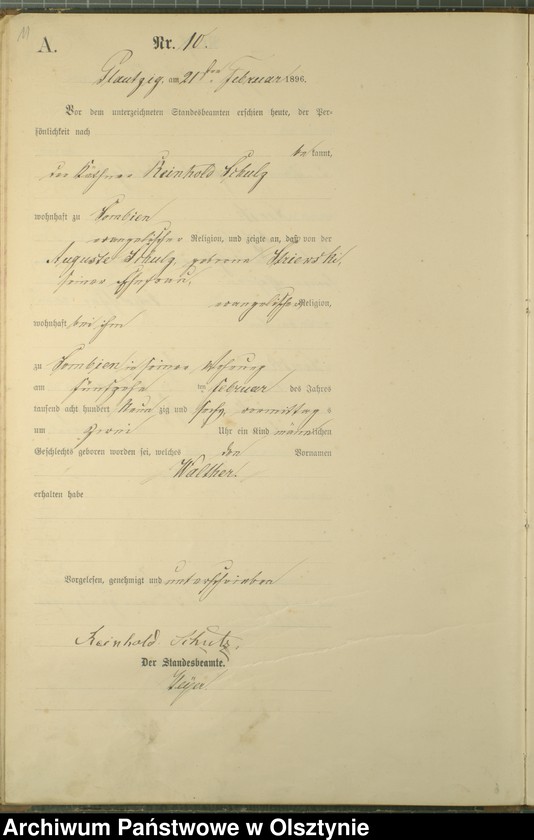 11
A.
Nr. 10.
Plautzig, am 21ten Februar 1896.
Vor dem unterzeichneten Standesbeamten erschien heute, der Per-
sönlichkeit nach
be kannt,
der Käthner Reinhold Schulz
wohnhaft zu Dombien
evangelischer Religion, und zeigte an, daß von der
Auguste Schulz geborene
seiner Ehefrau,
evangelischer Religion,
wohnhaft bei ihm
zu Dombien in seiner Wohnung
am fünfzehn ten Februar des Jahres
tausend acht hundert Neun zig und sechs, vormittag s
um zwei Uhr ein Kind männlichen
Geschlechts geboren worden sei, welches den Vornamen
Walther.
erhalten habe
Vorgelesen, genehmigt und unterschrieben
Reinhold Schulz.
Der Standesbeamte.
Archiwum Państwowe w Olsztynie